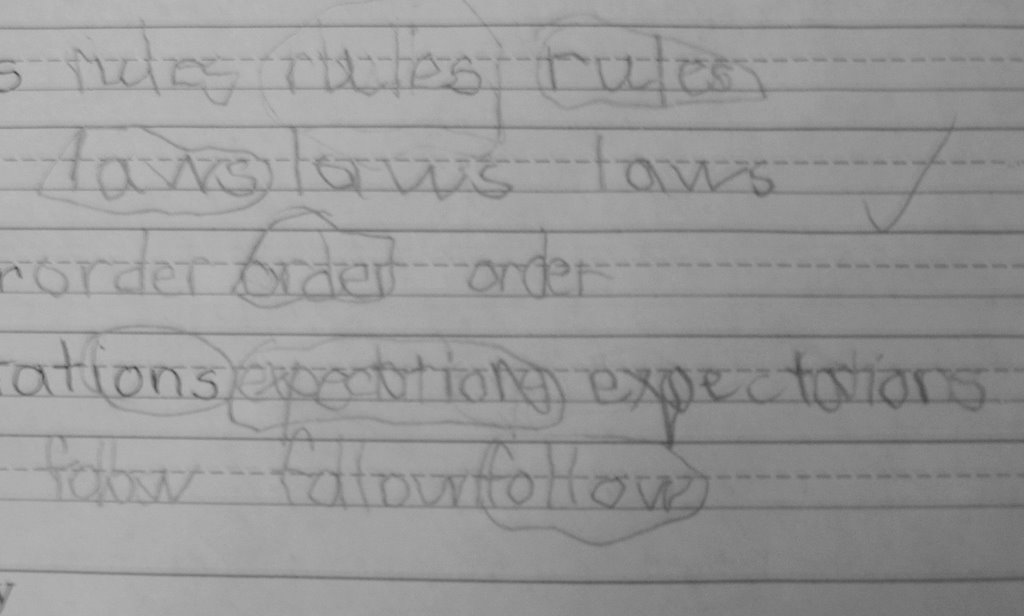 s rules rules rules
laws laws laws
r order order order
tations expectations expectations
follow follow follow
y